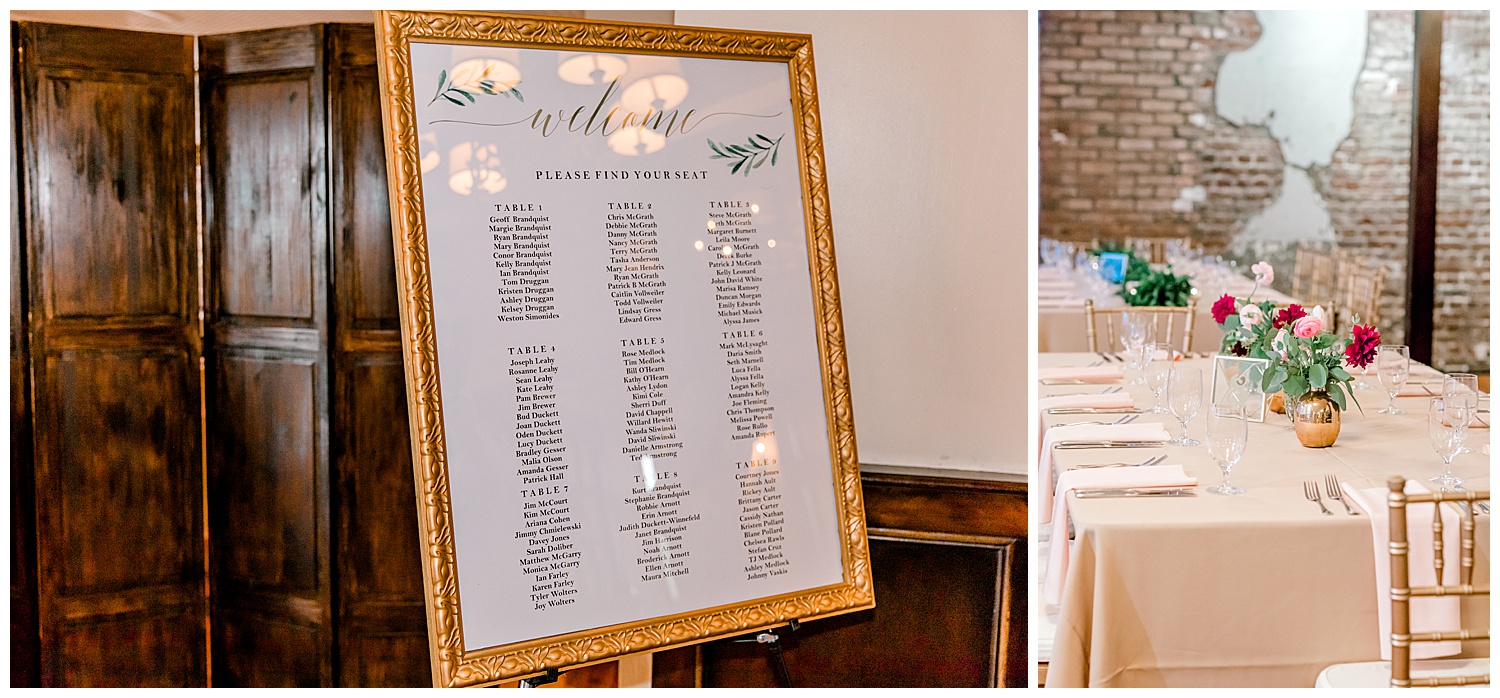 welcome
PLEASE FIND YOUR SEAT
TABLE 1
Geoff Brandquist
Margie Brandquist
Ryan Brandquist
Mary Brandquist
Conor Brandquist
Kelly Brandquist
Ian Brandquist
Tom Druggan
Kristen Druggan
Ashley Druggan
Kelsey Druggan
Weston Simonides
TABLE 2
Chris McGrath
Debbie McGrath
Danny McGrath
Nancy McGrath
Terry McGrath
Tasha Anderson
Mary Jean Hendrix
Ryan McGrath
Patrick B McGrath
Caitlin Vollweiler
Todd Vollweiler
Lindsay Gress
Edward Gress
TABLE 3
Steve McGrath
McGrath
Margaret Burnett
Leila Moore
McGrath
Derek Burke
Patrick J McGrath
Kelly Leonard
John David White
Marisa Ramsey
Duncan Morgan
Emily Edwards
Michael Musick
Alyssa James
TABLE 4
Joseph Leahy
Rosanne Leahy
Sean Leahy
Kate Leahy
Pam Brewer
Jim Brewer
Bud Duckett
Joan Duckett
Oden Duckett
Lucy Duckett
Bradley Gesser
Malia Olson
Amanda Gesser
Patrick Hall
TABLE 5
Rose Medlock
Tim Medlock
Bill O'Hearn
Kathy O'Hearn
Ashley Lydon
Kimi Cole
Sherri Duff
David Chappell
Willard Hewitt
Wanda Sliwinski
David Sliwinski
Danielle Armstrong
Ted Armstrong
TABLE 6
Mark McLysaght
Daria Smith
Seth Marnell
Luca Fella
Alyssa Fella
Logan Kelly
Amandra Kelly
Joe Fleming
Chris Thompson
Melissa Powell
Rose Rullo
Amanda Rupert
TABLE 7
Jim McCourt
Kim McCourt
Ariana Cohen
Jimmy Chmielewski
Davey Jones
Sarah Doliber
Matthew McGarry
Monica McGarry
Ian Farley
Karen Farley
Tyler Wolters
Joy Wolters
TABLE 8
Kurt Brandquist
Stephanie Brandquist
Robbie Arnott
Erin Arnott
Judith Duckett-Winnefeld
Janet Brandquist
Jim Harrison
Noah Arnott
Broderick Arnott
Ellen Arnott
Maura Mitchell
TABLE 9
Courtney Jones
Hannah Ault
Rickey Ault
Brittany Carter
Jason Carter
Cassidy Nathan
Kristen Pollard
Blane Pollard
Chelsea Rawls
Stefan Cruz
TJ Medlock
Ashley Medlock
Johnny Vaskis